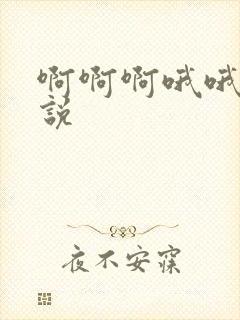 啊啊啊哦哦
説
夜不安寐